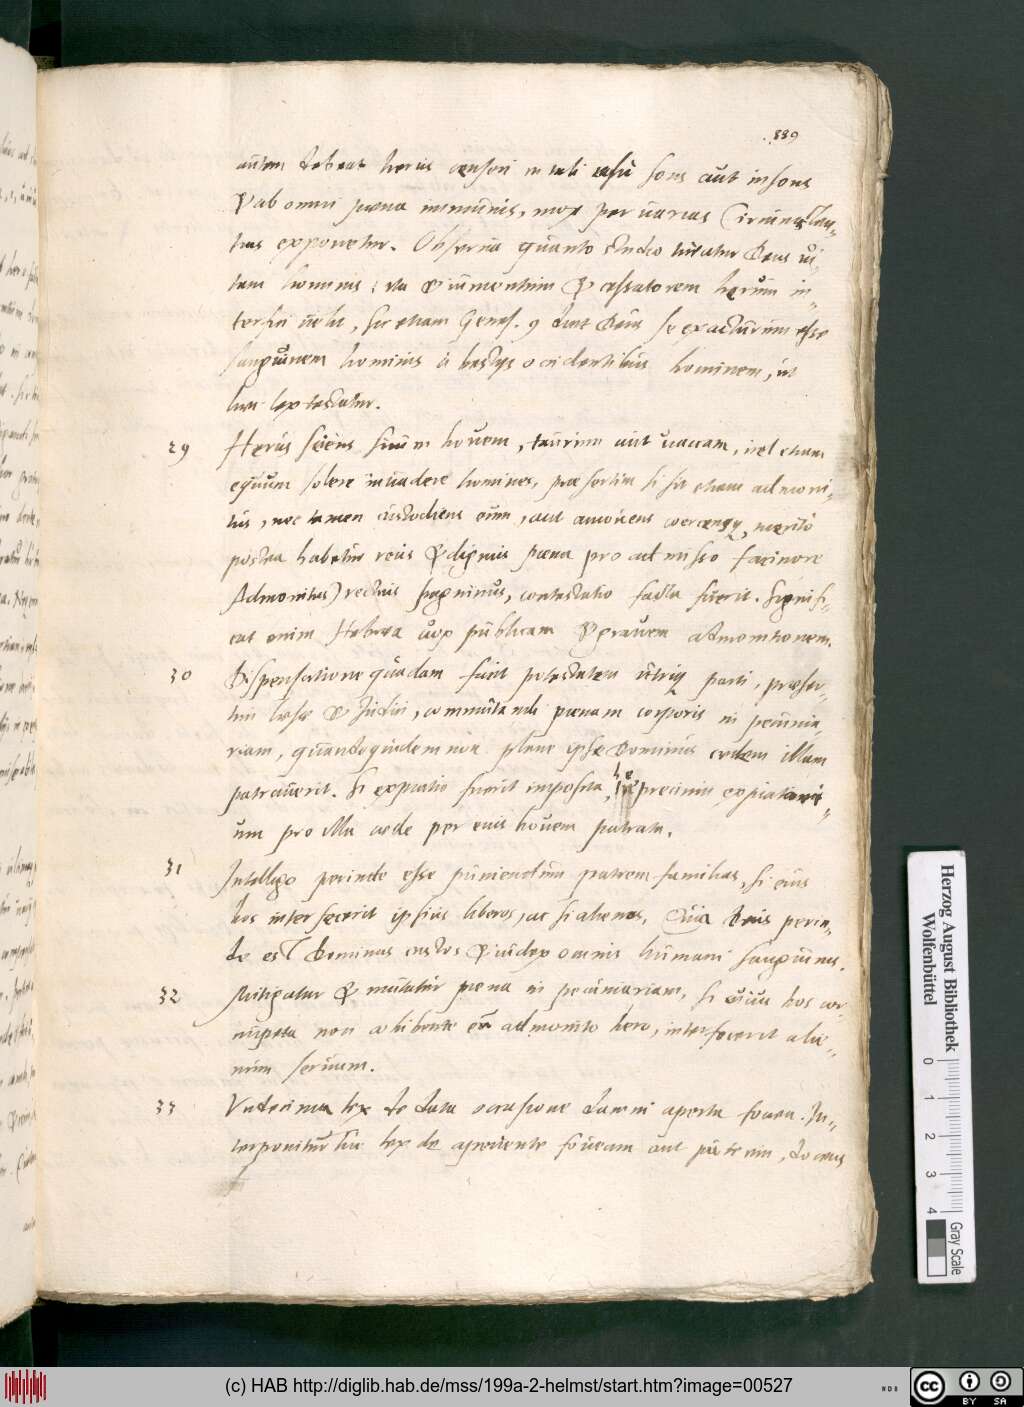 339
autem debeat herus censeri in tali casu sons aut insons
& ab omni poena immunis, mox per varias Circumstan-
tias exponetur. Observa quanto studio tueatur Deus vi-
tam hominis: ita & iumentum & cessatorem herum in-
terfici velit, sic etiam Genes. 9 dicit Deus se exacturum esse
sanguinem hominis à bestijs occidentibus hominem, ut
lex testatur.
29 Herus sciens suum bovem, taurum aut vaccam, vel etiam
equum solere invadere homines, praesertim si sit etiam admoni-
tus, nec tamen custodiens eum, aut amovens coercensq, merito
postea habetur reus & dignus poena pro admisso facinore
Admonitus) rectius sagninus, contestatio facta fuerit. Signifi-
cat enim Hebraea vox publicam & gravem admonitionem.
30 Dispensatione quadam facit potestatem utriq parti, praeser-
tim laesae & Iudici, commutandi poenam corporis in pecunia-
riam, quandoquidem non plane ipse Dominus caedem illam
patraverit. Si expiatio fuerit imposita, precium expiationis
um pro illa caede per eius bovem patrata.
31 Intelligo perinde esse puniendum patrem familias, si eius
bos interfecerit ipsius liberos, ac si alienos, Quia Deus perin-
de est Dominus custos & vindex omnis humani sanguinis.
32 Mitigatur & mutatur poena in pecuniariam, si cuius bos cor-
nupeta non cohibente eum admonito hero, interfecerit alie-
num servum.
33 Undecima lex de data occasione damni aperta fovea. In-
terponitur hic lex de aperiente foveam aut puteum, docens
Herzog August Bibliothek
Wolfenbüttel
0 1 2 3 4
Gray Scale
(c) HAB http://diglib.hab.de/mss/199a-2-helmst/start.htm?image=00527
cc BY SA